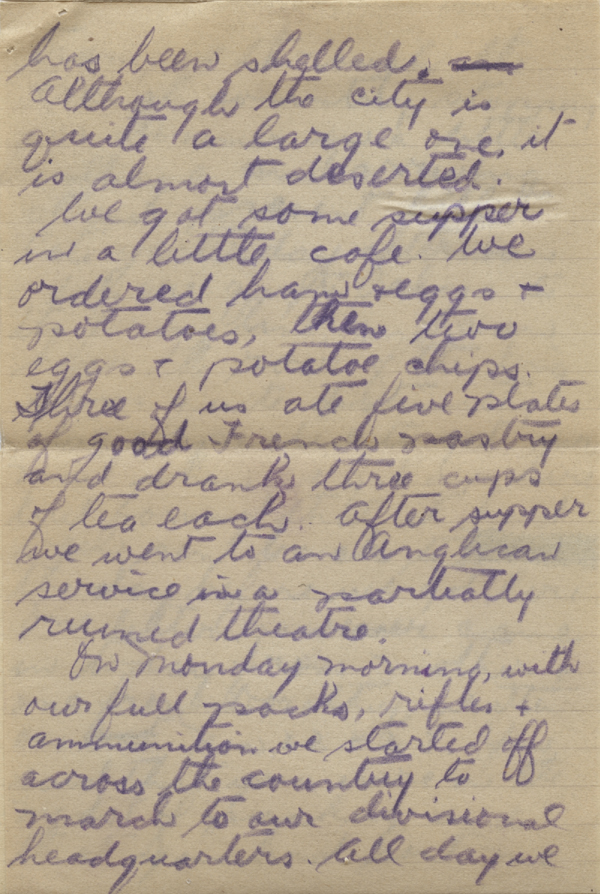 has been shelled.
Although the city is
quite a large one, it
is almost deserted.
We got some supper
in a little cafe. We
ordered ham + eggs +
potatoes, then two
eggs + potatoe chips.
Three of us ate five plates
of good French pastry
and drank three cups
of tea each. After supper
we went to an Anglican
service in a partially
ruined theatre.
On Monday morning, with
our full packs, rifles +
ammunition we started off
across the country to
march to our divisional
headquarters. All day we